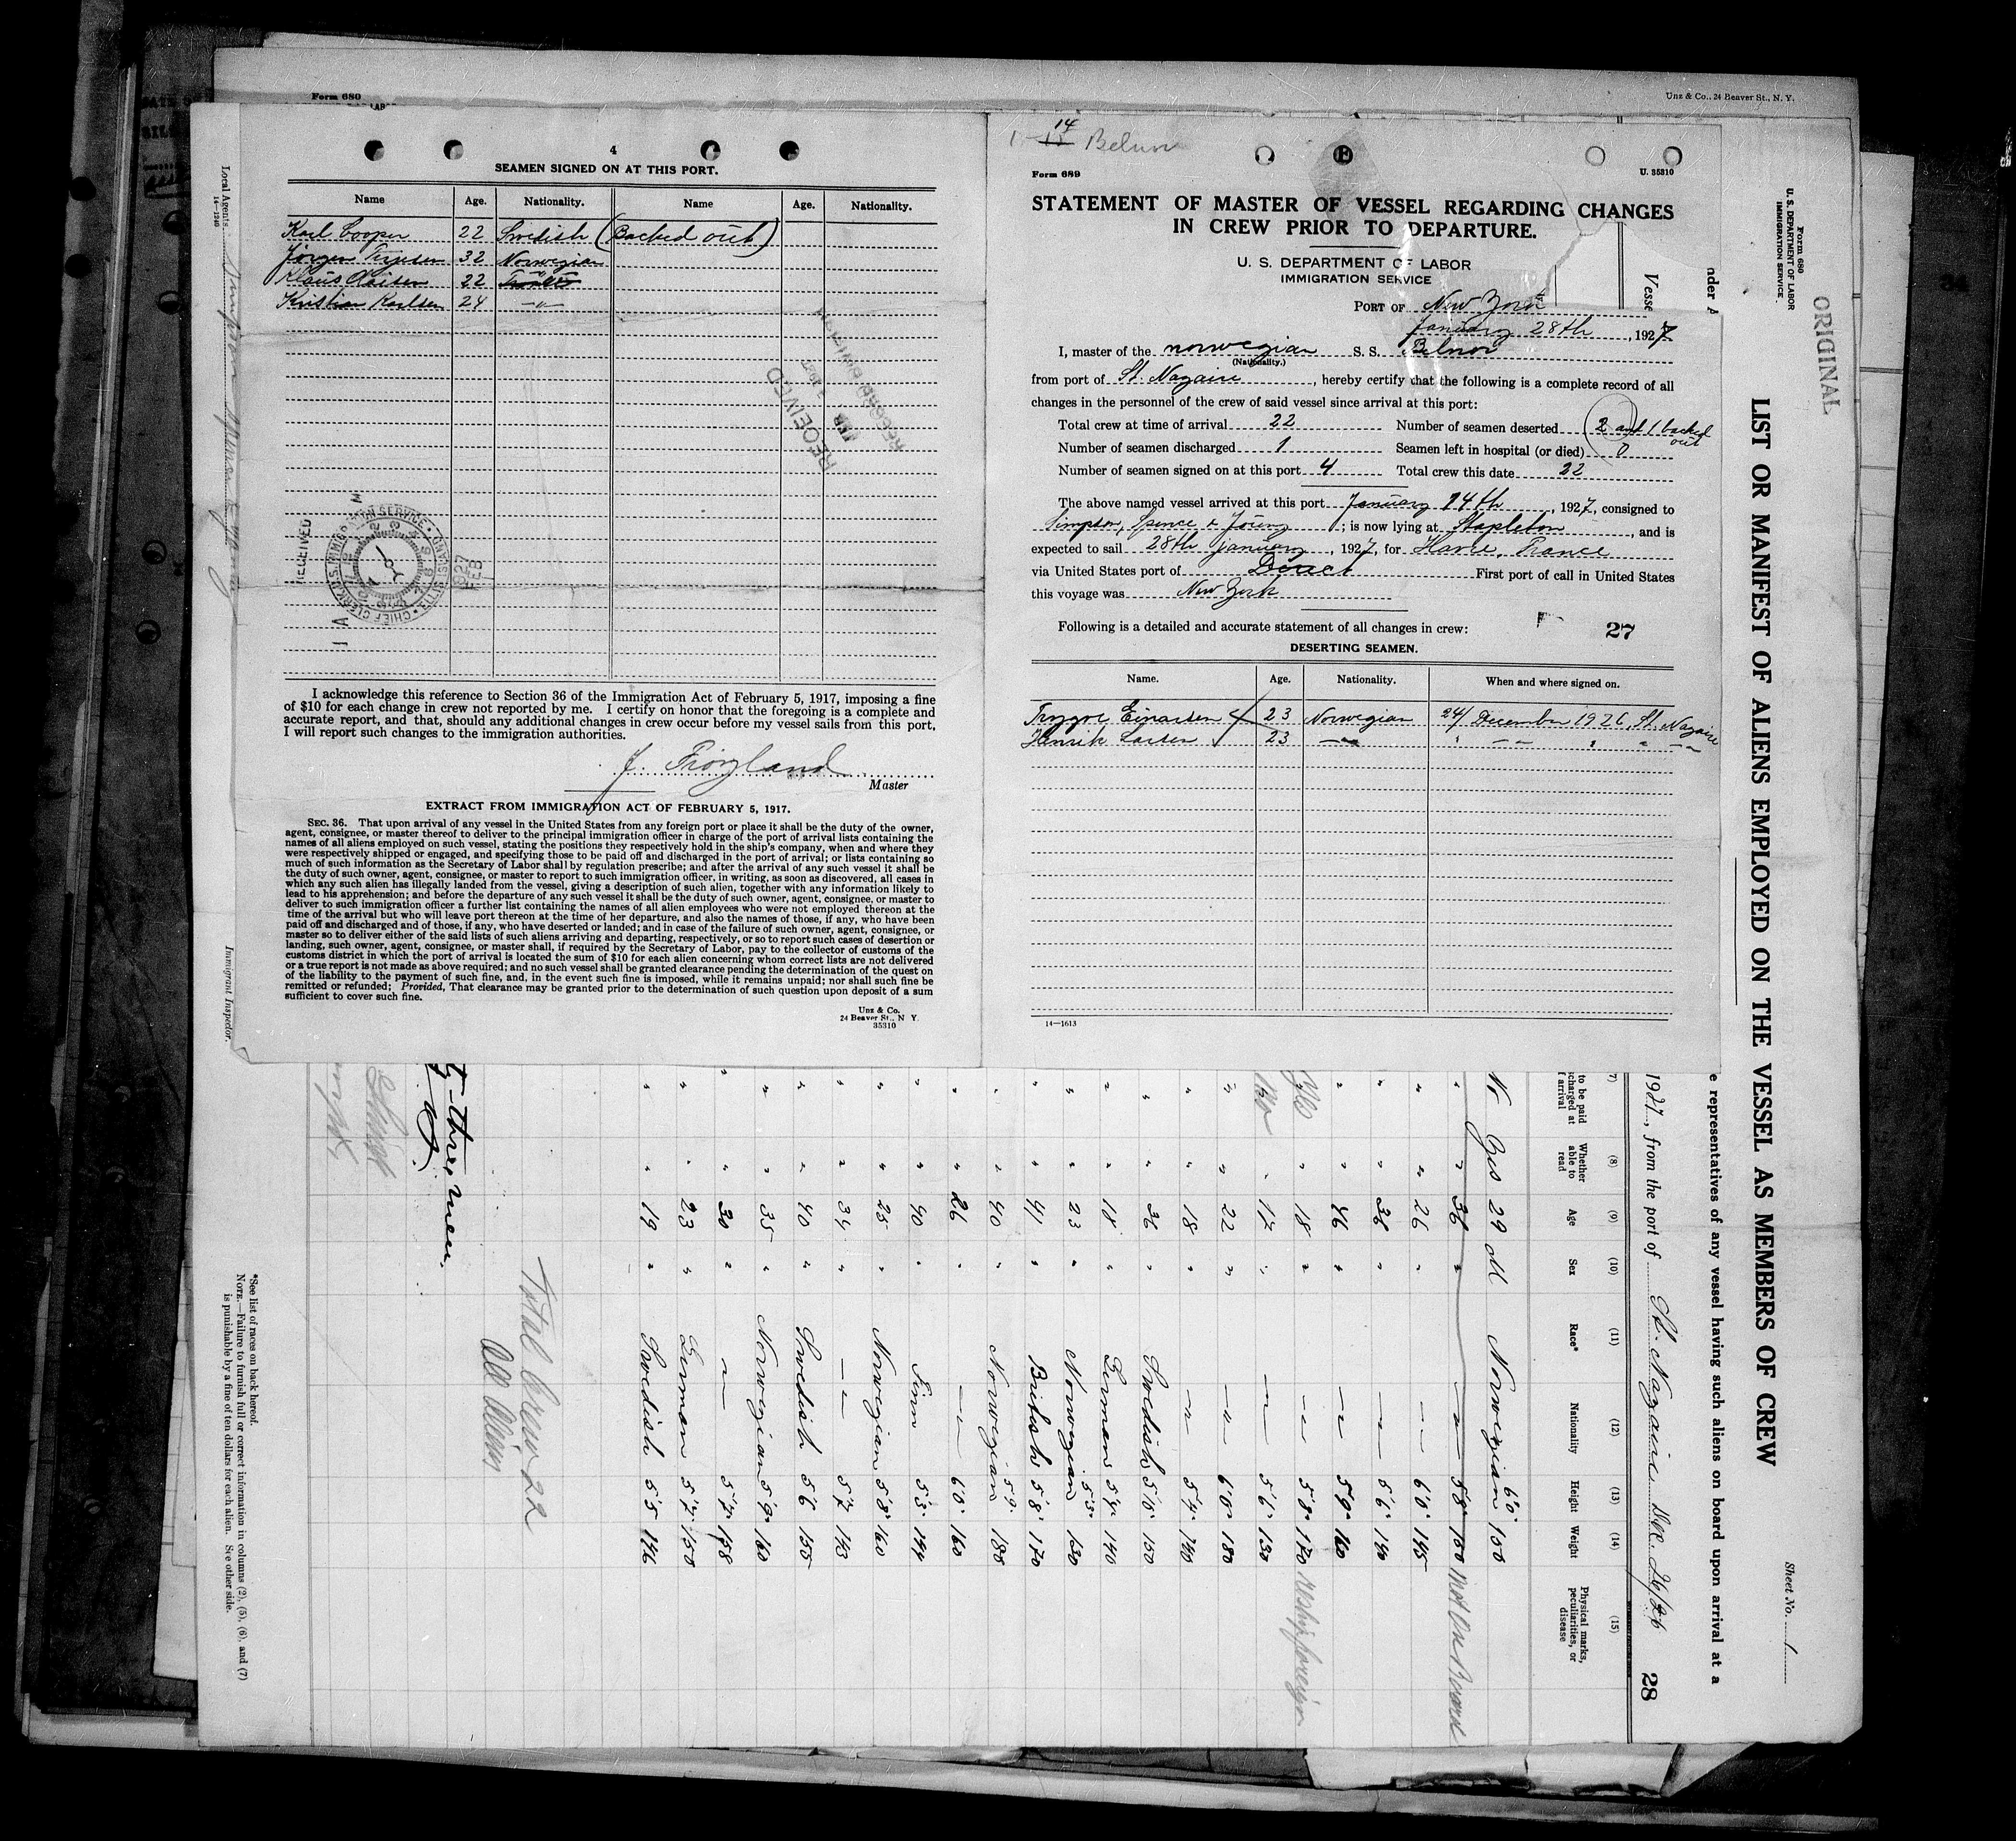 Form 680
Unz & Co., 24 Beaver St., N. Y.
4
SEAMEN SIGNED ON AT THIS PORT.
Name Age. Nationality. Name Age. Nationality.
Karl Cooper 22 Swedish (Backed out)
Jörgen Terjesen 32 Norwegian
Klaus Claisen 22
Kristian Karlsen 24 —"—
RECEIVED
FEB
RECEIVED
U.S. IMMIGRATION SERVICE
CHIEF CLERK
1927
FEB
I acknowledge this reference to Section 36 of the Immigration Act of February 5, 1917, imposing a fine
of $10 for each change in crew not reported by me. I certify on honor that the foregoing is a complete and
accurate report, and that, should any additional changes in crew occur before my vessel sails from this port,
I will report such changes to the immigration authorities.
J. Fröyland
Master
EXTRACT FROM IMMIGRATION ACT OF FEBRUARY 5, 1917.
SEC. 36. That upon arrival of any vessel in the United States from any foreign port or place it shall be the duty of the owner,
agent, consignee, or master thereof to deliver to the principal immigration officer in charge of the port of arrival lists containing the
names of all aliens employed on such vessel, stating the positions they respectively hold in the ship's company, when and where they
were respectively shipped or engaged, and specifying those to be paid off and discharged in the port of arrival; or lists containing so
much of such information as the Secretary of Labor shall by regulation prescribe; and after the arrival of any such vessel it shall be
the duty of such owner, agent, consignee, or master to report to such immigration officer, in writing, as soon as discovered, all cases in
which any such alien has illegally landed from the vessel, giving a description of such alien, together with any information likely to
lead to his apprehension; and before the departure of any such vessel it shall be the duty of such owner, agent, consignee, or master to
deliver to such immigration officer a further list containing the names of all alien employees who were not employed thereon at the
time of the arrival but who will leave port thereon at the time of her departure, and also the names of those, if any, who have been
paid off and discharged and of those, if any, who have deserted or landed; and in case of the failure of such owner, agent, consignee, or
master so to deliver either of the said lists of such aliens arriving and departing, respectively, or so to report such cases of desertion or
landing, such owner, agent, consignee, or master shall, if required by the Secretary of Labor, pay to the collector of customs of the
customs district in which the port of arrival is located the sum of $10 for each alien concerning whom correct lists are not delivered
or a true report is not made as above required; and no such vessel shall be granted clearance pending the determination of the quest on
of the liability to the payment of such fine, and, in the event such fine is imposed, while it remains unpaid; nor shall such fine be
remitted or refunded; Provided, That clearance may be granted prior to the determination of such question upon deposit of a sum
sufficient to cover such fine.
Unz & Co.
24 Beaver St., N. Y.
35310
14 Belnor
Form 689
U. 35310
STATEMENT OF MASTER OF VESSEL REGARDING CHANGES
IN CREW PRIOR TO DEPARTURE.
U. S. DEPARTMENT OF LABOR
IMMIGRATION SERVICE
PORT OF New York
January 28th, 1927
I, master of the norwegian S. S. Belnor
(Nationality.)
from port of St. Nazaire, hereby certify that the following is a complete record of all
changes in the personnel of the crew of said vessel since arrival at this port:
Total crew at time of arrival 22 Number of seamen deserted 2 and 1 backed out
Number of seamen discharged 1 Seamen left in hospital (or died) 0
Number of seamen signed on at this port 4 Total crew this date 22
The above named vessel arrived at this port January 14th, 1927, consigned to
Simpson, Spence & Young; is now lying at Stapleton, and is
expected to sail 28th january, 1927, for Havre, France
via United States port of Direct First port of call in United States
this voyage was New York
Following is a detailed and accurate statement of all changes in crew:
27
DESERTING SEAMEN.
Name. Age. Nationality. When and where signed on.
Trygve Einarsen 23 Norwegian 24/ December 1926, St. Nazaire
Henrik Larsen 23 —"— " —"— " " —"—
14—1613
Local Agents
14—1240
Immigrant Inspector.
Form 680
U. S. DEPARTMENT OF LABOR
IMMIGRATION SERVICE.
ORIGINAL
Sheet No. 1
LIST OR MANIFEST OF ALIENS EMPLOYED ON THE VESSEL AS MEMBERS OF CREW
nder A
e representatives of any vessel having such aliens on board upon arrival at a
Vesse
1927, from the port of St. Nazaire Dec. 26/26
28
(7) to be paid charged at f arrival
(8) Whether able to read
(9) Age
(10) Sex
(11) Race*
(12) Nationality
(13) Height
(14) Weight
(15) Physical marks, peculiarities, or disease
Yes 29 M Norwegian 6'0" 150
" 36 " —"— 5'8" 150 Not On Board
" 26 " —"— 6'0" 145
" 36 " —"— 5'6" 140
" 46 " —"— 5'9" 160
" 18 " —"— 5'8" 170 reship foreign
" 17 " —"— 5'6" 130
" 22 " —"— 6'0" 180
" 18 " —"— 5'7" 140
" 36 " Swedish 5'10" 150
" 18 " German 5'4" 140
" 23 " Norwegian 5'3" 130
" 41 " British 5'8" 170
" 40 " Norwegian 5'9" 180
" 26 " —"— 6'0" 160
" 40 " Finn 5'3" 144
" 25 " Norwegian 5'8" 160
" 34 " —"— 5'7" 143
" 40 " Swedish 5'6" 155
" 35 " Norwegian 5'9" 160
" 30 " —"— 5'7" 158
" 23 " German 5'7" 150
" 19 " Swedish 5'5" 146
three men.
Total Crew 22
All Alien
*See list of races on back hereof.
NOTE.—Failure to furnish full or correct information in columns (2), (5), (6), and (7)
is punishable by a fine of ten dollars for each alien. See other side.